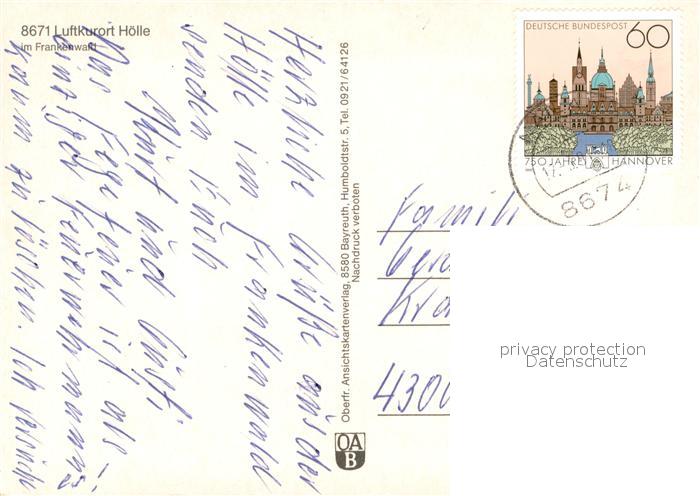 8671 Luftkurort Hölle
im Frankenwald
Herzliche Grüße aus der
Hölle im Frankenwald
senden Euch
Mart und Gusti
Das Fegefeuer ist als
einziger Feuerwehrmann
kaum zu löschen. Ich versuch
!
Oberfr. Ansichtskartenverlag, 8580 Bayreuth, Humboldtstr. 5, Tel. 0921/64126
Nachdruck verboten
OA
B
DEUTSCHE BUNDESPOST 60
750 JAHRE HANNOVER
8674
Famili
Kra
4300
privacy protection
Datenschutz